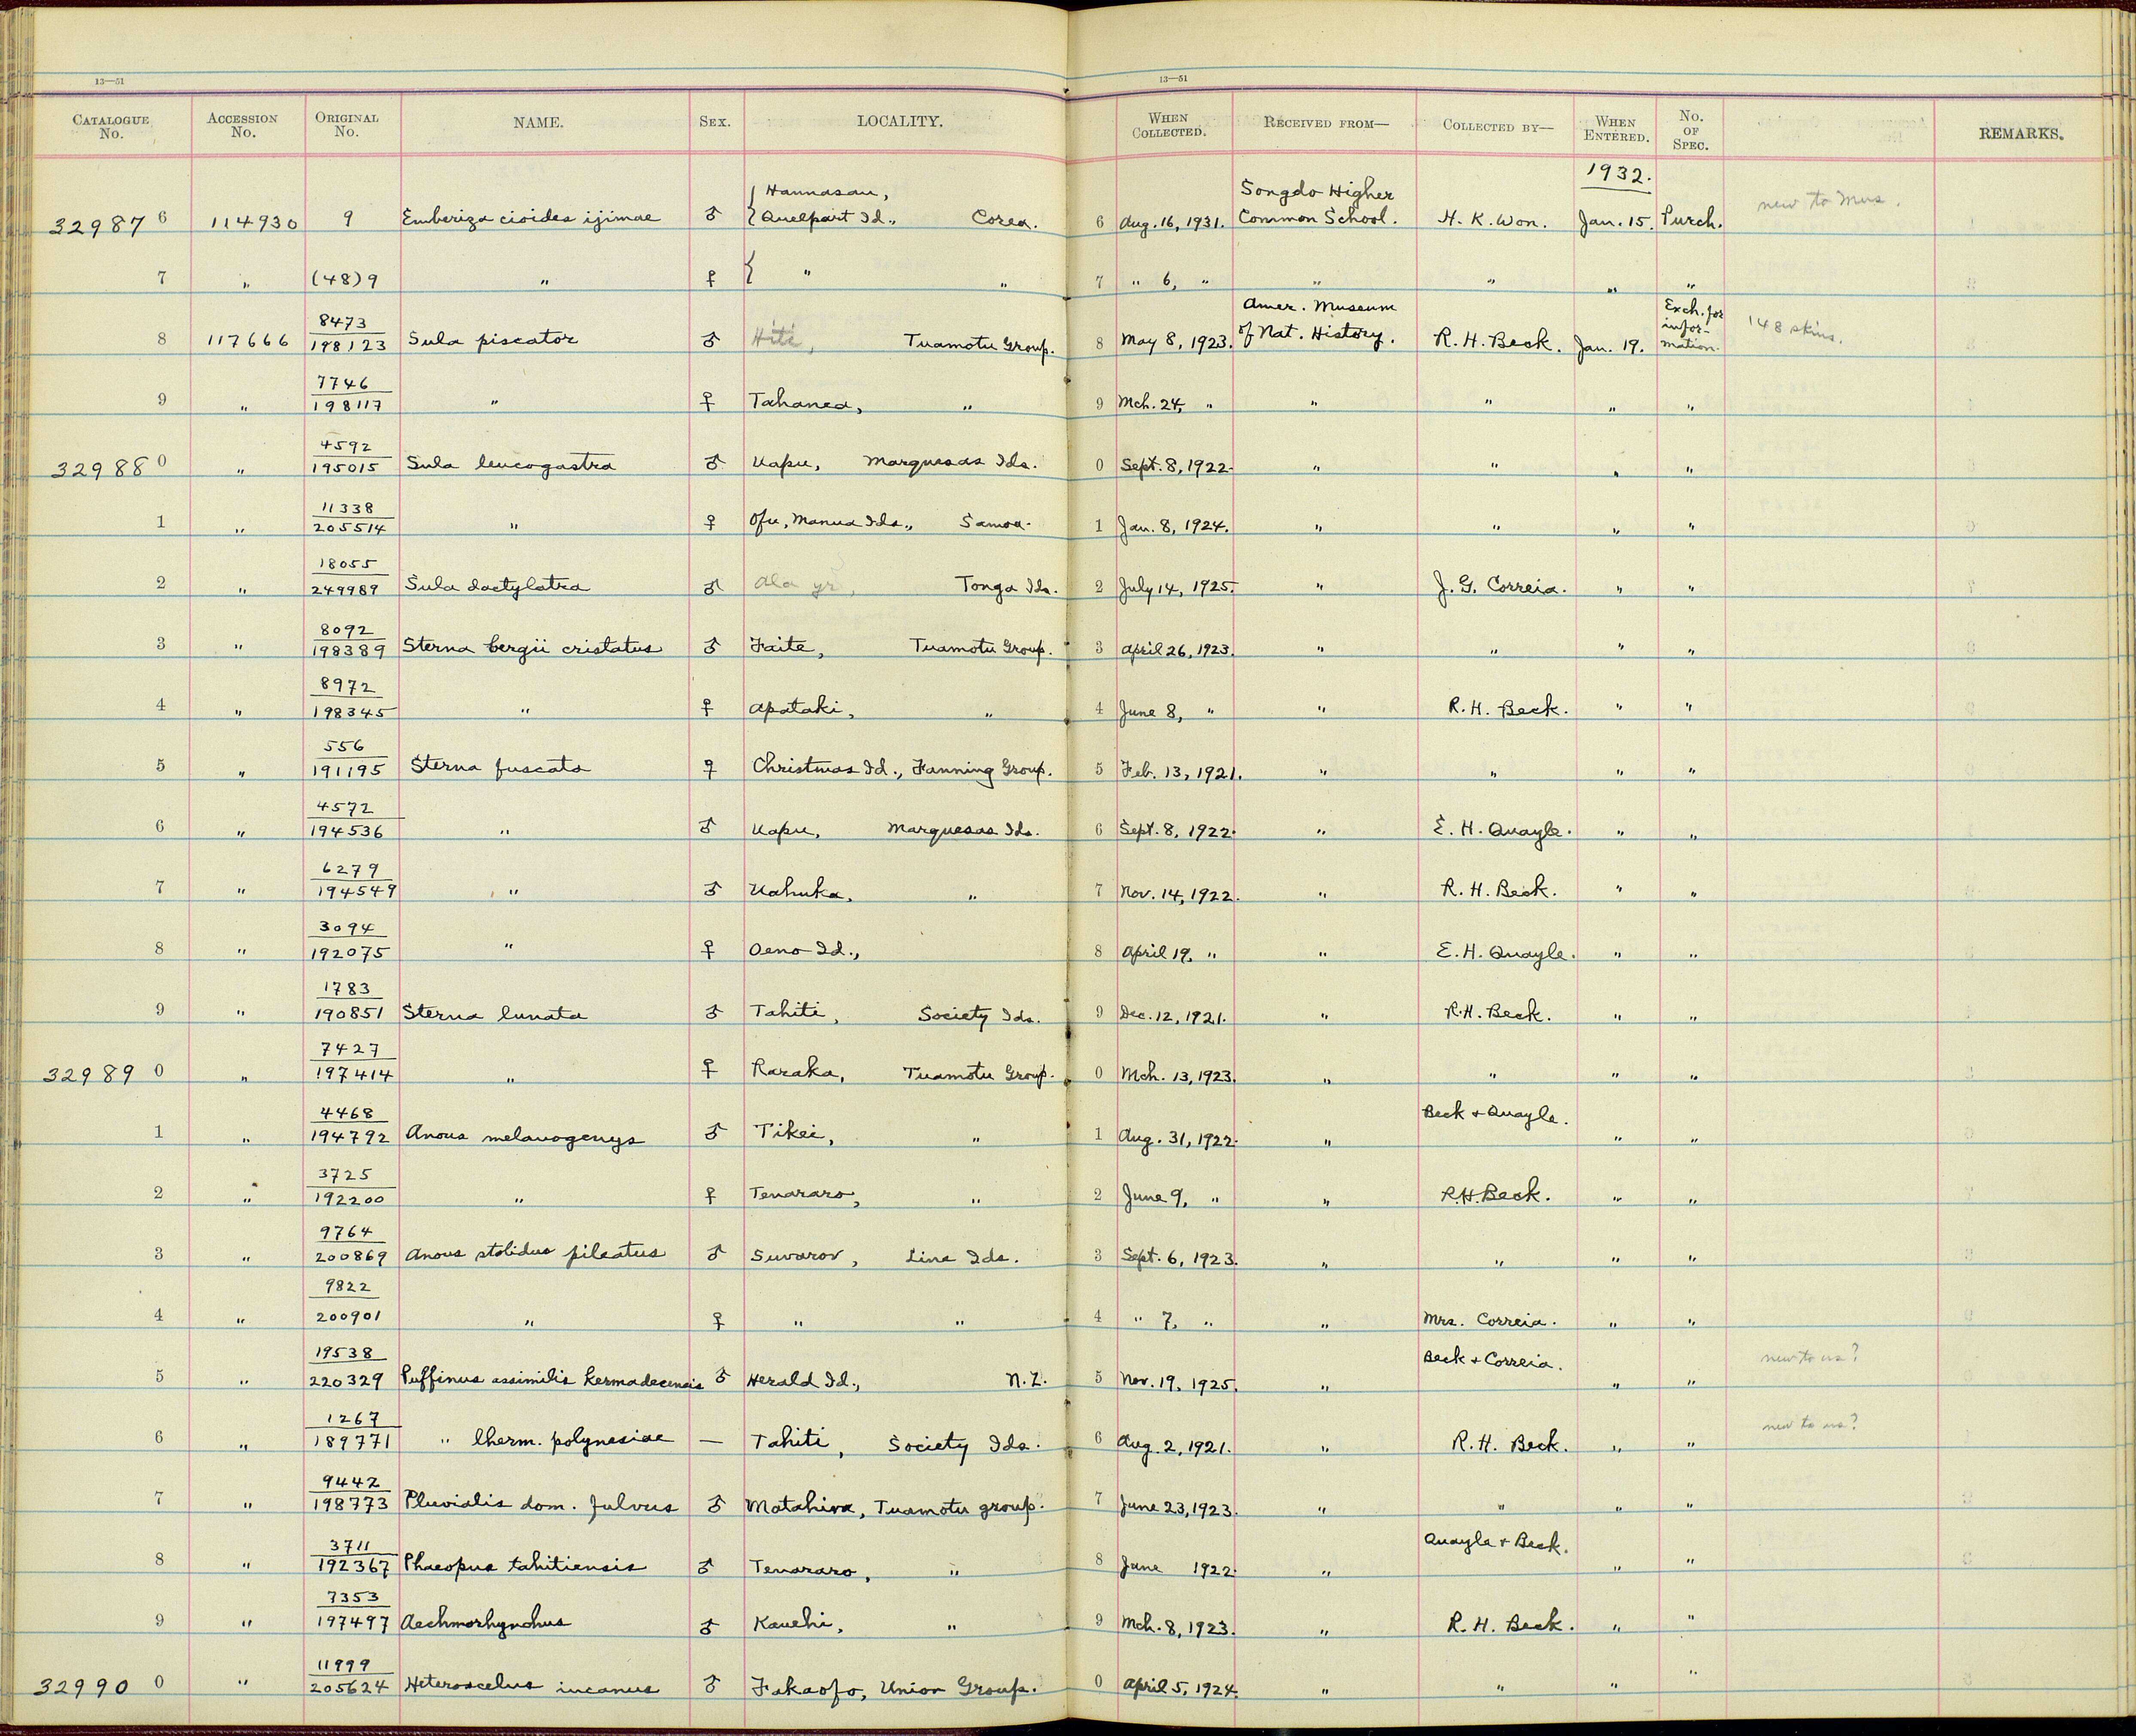 13—51 13—51
CATALOGUE No. ACCESSION No. ORIGINAL No. NAME. SEX. LOCALITY. WHEN COLLECTED. RECEIVED FROM— COLLECTED BY— WHEN ENTERED. No. OF SPEC. REMARKS.
1932.
Hannasan, Songdo Higher new to Mus.
32987 6 114930 9 Emberiza cioides ijimae ♂ Quelpart Id., Corea. 6 Aug. 16, 1931. Common School. H. K. Won. Jan. 15. Purch.
7 " (48)9 " ♀ " " 7 " 6, " " " " "
8473 Amer. Museum Exch. for
8 117666 198123 Sula piscator ♂ Hiti, Tuamotu Group. 8 May 8, 1923. of Nat. History. R. H. Beck. Jan. 19. infor- 148 skins.
mation.
7746
9 " 198117 " ♀ Tahanea, " 9 Mch. 24, " " " " "
4592
32988 0 " 195015 Sula leucogastra ♂ Uapu, Marquesas Ids. 0 Sept. 8, 1922. " " " "
11338
1 " 205514 " ♀ Ofu, Manua Ids., Samoa. 1 Jan. 8, 1924. " " " "
18055
2 " 249989 Sula dactylatra ♂ Tonga Ids. 2 July 14, 1925. " J. G. Correia. " "
8092
3 " 198389 Sterna bergii cristatus ♂ Faite, Tuamotu Group. 3 April 26, 1923. " " " "
8972
4 " 198345 " ♀ Apataki, " 4 June 8, " " R. H. Beck. " "
556
5 " 191195 Sterna fuscata ♀ Christmas Id., Fanning Group. 5 Feb. 13, 1921. " " " "
4572
6 " 194536 " ♂ Uapu, Marquesas Ids. 6 Sept. 8, 1922. " E. H. Quayle. " "
6279
7 " 194549 " ♂ Uahuka, " 7 Nov. 14, 1922. " R. H. Beck. " "
3094
8 " 192075 " ♀ Oeno Id., 8 April 19, " " E. H. Quayle. " "
1783
9 " 190851 Sterna lunata ♂ Tahiti, Society Ids. 9 Dec. 12, 1921. " R. H. Beck. " "
7427
32989 0 " 197414 " ♀ Raraka, Tuamotu Group. 0 Mch. 13, 1923. " " " "
4468 Beck + Quayle.
1 " 194792 Anous melanogenys ♂ Tikei, " 1 Aug. 31, 1922. " " "
3725
2 " 192200 " ♀ Tenararo, " 2 June 9, " " R. H. Beck. " "
9764
3 " 200869 Anous stolidus pileatus ♂ Suvarov, Line Ids. 3 Sept. 6, 1923. " " " "
9822
4 " 200901 " ♀ " " 4 " 7, " " Mrs. Correia. " "
19538 Beck + Correia. new to us?
5 " 220329 Puffinus assimilis kermadecensis ♂ Herald Id., N. Z. 5 Nov. 19, 1925. " " "
1267 new to us?
6 " 189771 " lherm. polynesiae — Tahiti, Society Ids. 6 Aug. 2, 1921. " R. H. Beck. " "
9442
7 " 198773 Pluvialis dom. fulvus ♂ Matahiva, Tuamotu group. 7 June 23, 1923. " " " "
3711 Quayle + Beck.
8 " 192367 Phaeopus tahitiensis ♂ Tenararo, " 8 June 1922. " " "
7353
9 " 197497 Aechmorhynchus ♂ Kauehi, " 9 Mch. 8, 1923. " R. H. Beck. " "
11999
32990 0 " 205624 Heteroscelus incanus ♂ Fakaofo, Union Group. 0 April 5, 1924. " " " "